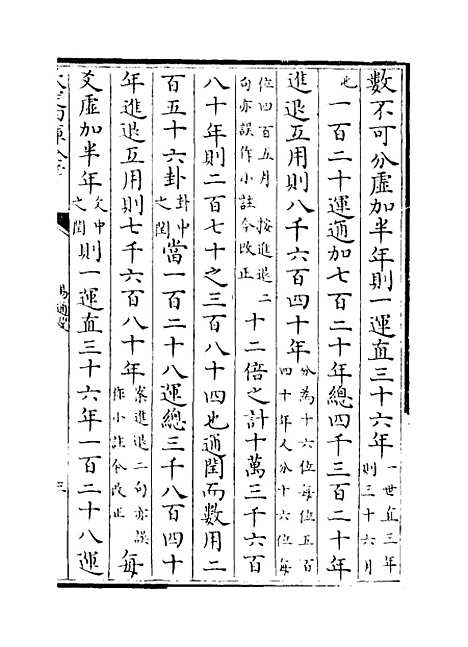 數不可分虛加半年則一運直三十六年一世直三年則三十六月
也一百二十運通加七百二十年總四千三百二十年
進退互用則八千六百四十年分為十六位每位五百四十年又分十六位每
位四百五月 按進退二句亦誤作小註今改正十二倍之計十萬三千六百
八十年則二百七十之三百八十四也通閏而數用二
百五十六卦卦中之閏當一百二十八運總三千八百四十
年進退互用則七千六百八十年案進退二句亦誤作小註今改正每
爻虛加半年爻中之閏則一運直三十六年一百二十八運
易通變
三